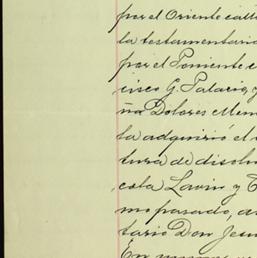 por el Oriente call
la testamentaria
por el Poniente c
cisco G. Palacio, y
ña Dolores Men
la adquirió el
tura de disolu
cola Lavin y C
mo pasado, a
tario Don Jesu
En